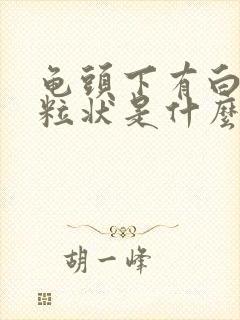 龟頭下有白
粒状是什麼
胡一峰